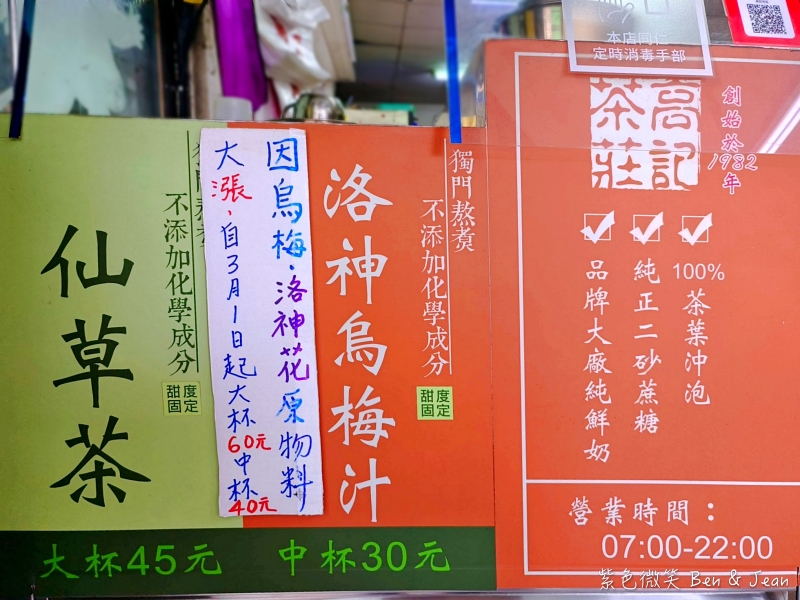 本店同仁
定時消毒手部
高記茶莊
創始於1982年
100%茶葉沖泡
純正二砂蔗糖
品牌大廠純鮮奶
營業時間：
07:00-22:00
獨門熬煮
不添加化學成分
甜度固定
洛神烏梅汁
因烏梅、洛神花原物料
大漲，自3月1日起大杯60元中杯40元
不添加化學成分
甜度固定
仙草茶
大杯45元 中杯30元
紫色微笑 Ben & Jean